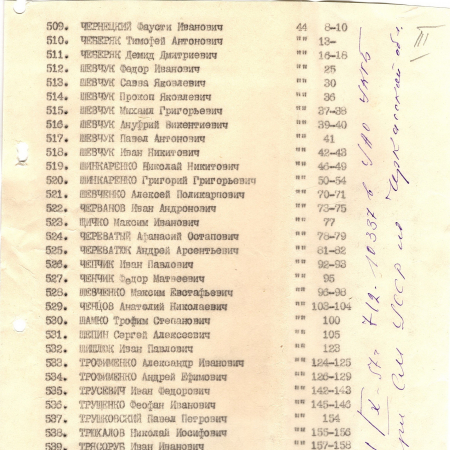 509. ЧЕРНЕЦКИЙ Фауст Иванович 44 8-10
510. ЧЕБЕРЯК Тимофей Антонович "" 13-
511. ЧЕБЕРЯК Демид Дмитриевич "" 16-18
512. ШЕВЧУК Федор Иванович "" 25
513. ШЕВЧУК Савва Яковлевич "" 30
514. ШЕВЧУК Прокоп Яковлевич "" 36
515. ШЕВЧУК Михаил Григорьевич "" 37-38
516. ШЕВЧУК Ануфрий Викентиевич "" 39-40
517. ШЕВЧУК Павел Антонович "" 41
518. ШЕВЧУК Иван Никитович "" 42-43
519. ШИНКАРЕНКО Николай Никитович "" 44-49
520. ШИНКАРЕНКО Григорий Григорьевич "" 50-54
521. ШЕВЧЕНКО Алексей Поликарпович "" 70-71
522. ЧЕРВАНОВ Иван Андронович "" 73-75
523. ЩИЧКО Максим Иванович "" 77
524. ЧЕРЕВАТЫЙ Афанасий Остапович "" 78-79
525. ЧЕРЕВАТЮК Андрей Арсентьевич "" 81-82
526. ЧЕПЧИК Иван Павлович "" 92-93
527. ЧЕПЧИК Федор Матвеевич "" 95
528. ШЕВЧЕНКО Максим Евстафьевич "" 96-98
529. ЧЕНЦОВ Анатолий Николаевич "" 103-104
530. ШАМКО Трофим Степанович "" 100
531. ШЕПИН Сергей Алексеевич "" 105
532. Иван Павлович "" 123
533. ТРОФИМЕНКО Александр Иванович "" 124-125
534. ТРОФИМЕНКО Андрей Ефимович "" 126-129
535. ТРУСЕВИЧ Иван Федорович "" 142-143
536. ТРУЩЕНКО Феофан Иванович "" 145-146
537. ТРУШКОВСКИЙ Павел Петрович "" 154
538. ТРЮКАЛОВ Николай Иосифович "" 155-156
539. ТРЯСОРУБ Иван Иванович "" 157-158
III
/X-57г 7/2-10337 в УАО УКГБ
при СМ УССР по Черкасской обл.